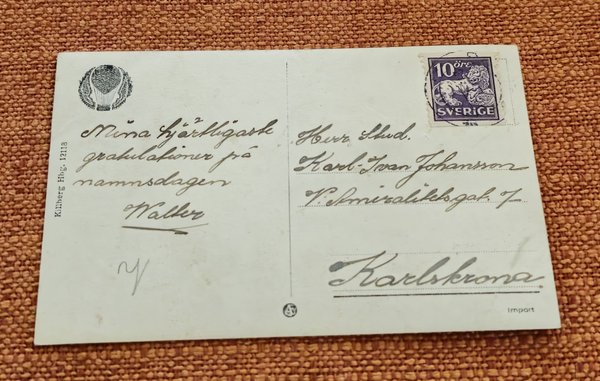 Mina hjärtligaste
gratulationer på
namnsdagen
Walter
Killberg Hbg. 12118
10 öre
SVERIGE
Herr Stud.
Karl-Ivan Johansson
V. Amiralitetsgat. 7
Karlskrona
Import